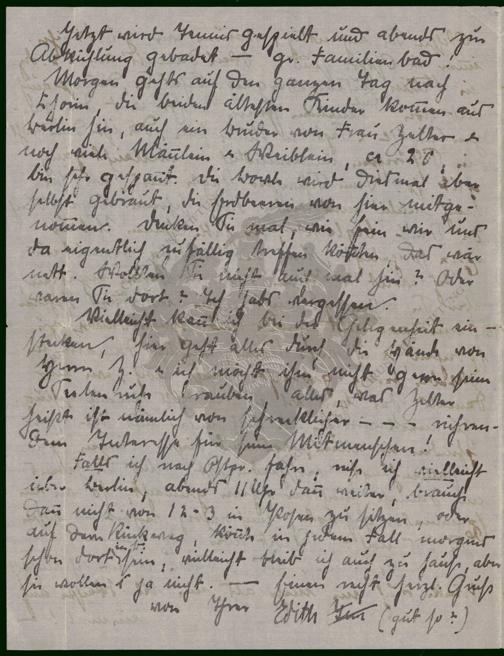 Jetzt wird Tennis gespielt und abends zur
Abkühlung gebadet — gr. Familienbad!
Morgen gehts auf den ganzen Tag nach
Chorin, die beiden ältesten Kinder kom̄en aus
Berlin hin, auch ein Bruder von Frau Zelter &
noch viele Mänlein & Weiblein, ca 20,
bin sehr gespan̄t. Die Bowle wird diesmal
selbst gebraut, die Erdbeeren von hier mitge-
nom̄en. Denken Sie mal, wie fein wir uns
da eigentlich zufällig treffen kön̄ten, das wär
nett. Wollten Sie nicht auch mal hin? Oder
waren Sie dort? Ich habs vergessen.
Vielleicht kan̄ ich bei der Gelegenheit ein-
stecken, hier geht alles durch die Hände von
Herrn Z. & ich möcht ihm nicht gern seine
Seelenruhe rauben, alles, was Zelter
heißt ist nämlich von schrecklicher - - - rühren-
dem Interesse für seine Mitmenschen!
Falls ich nach Ostpr. fahre, reise ich vielleicht
über Berlin, abends 11 Uhr dan̄ weiter, brauch
dan̄ nicht von 12-3 in Posen zu sitzen, oder
auf dem Rückweg, kön̄te in jedem Fall morgens
schon dort sein, vielleicht bleib ich auch zu Haus, aber
sie wollen's ja nicht. — Einen recht herzl. Gruß
von Ihrer Edith (gut so?)